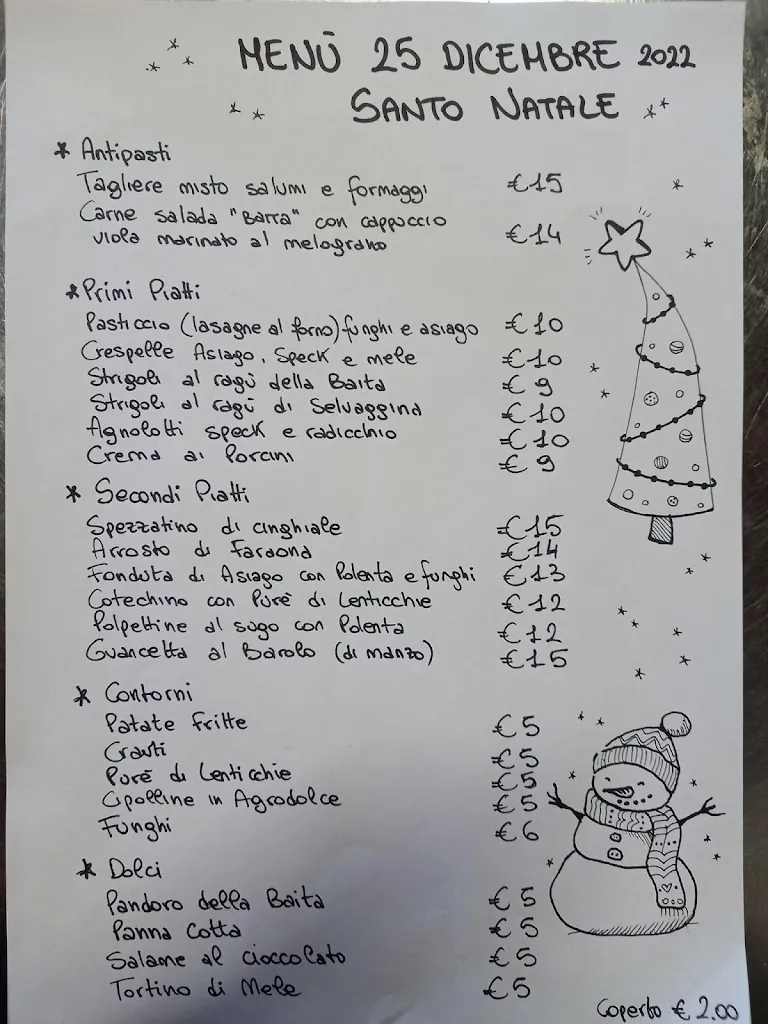 MENÙ 25 DICEMBRE 2022
SANTO NATALE
* Antipasti
Tagliere misto salumi e formaggi €15
Carne salada "Barra" con cappuccio
viola marinato al melograno €14
* Primi Piatti
Pasticcio (lasagne al forno) funghi e asiago €10
Crespelle Asiago, Speck e mele €10
Strigoli al ragù della Baita €9
Strigoli al ragù di Selvaggina €10
Agnolotti speck e radicchio €10
Crema ai Porcini €9
* Secondi Piatti
Spezzatino di cinghiale €15
Arrosto di Faraona €14
Fonduta di Asiago con Polenta e funghi €13
Cotechino con Purè di Lenticchie €12
Polpettine al sugo con Polenta €12
Guancetta al Barolo (di manzo) €15
* Contorni
Patate fritte €5
Crauti €5
Purè di Lenticchie €5
Cipolline in Agrodolce €5
Funghi €6
* Dolci
Pandoro della Baita €5
Panna Cotta €5
Salame al cioccolato €5
Tortino di Mele €5
Coperto €2.00